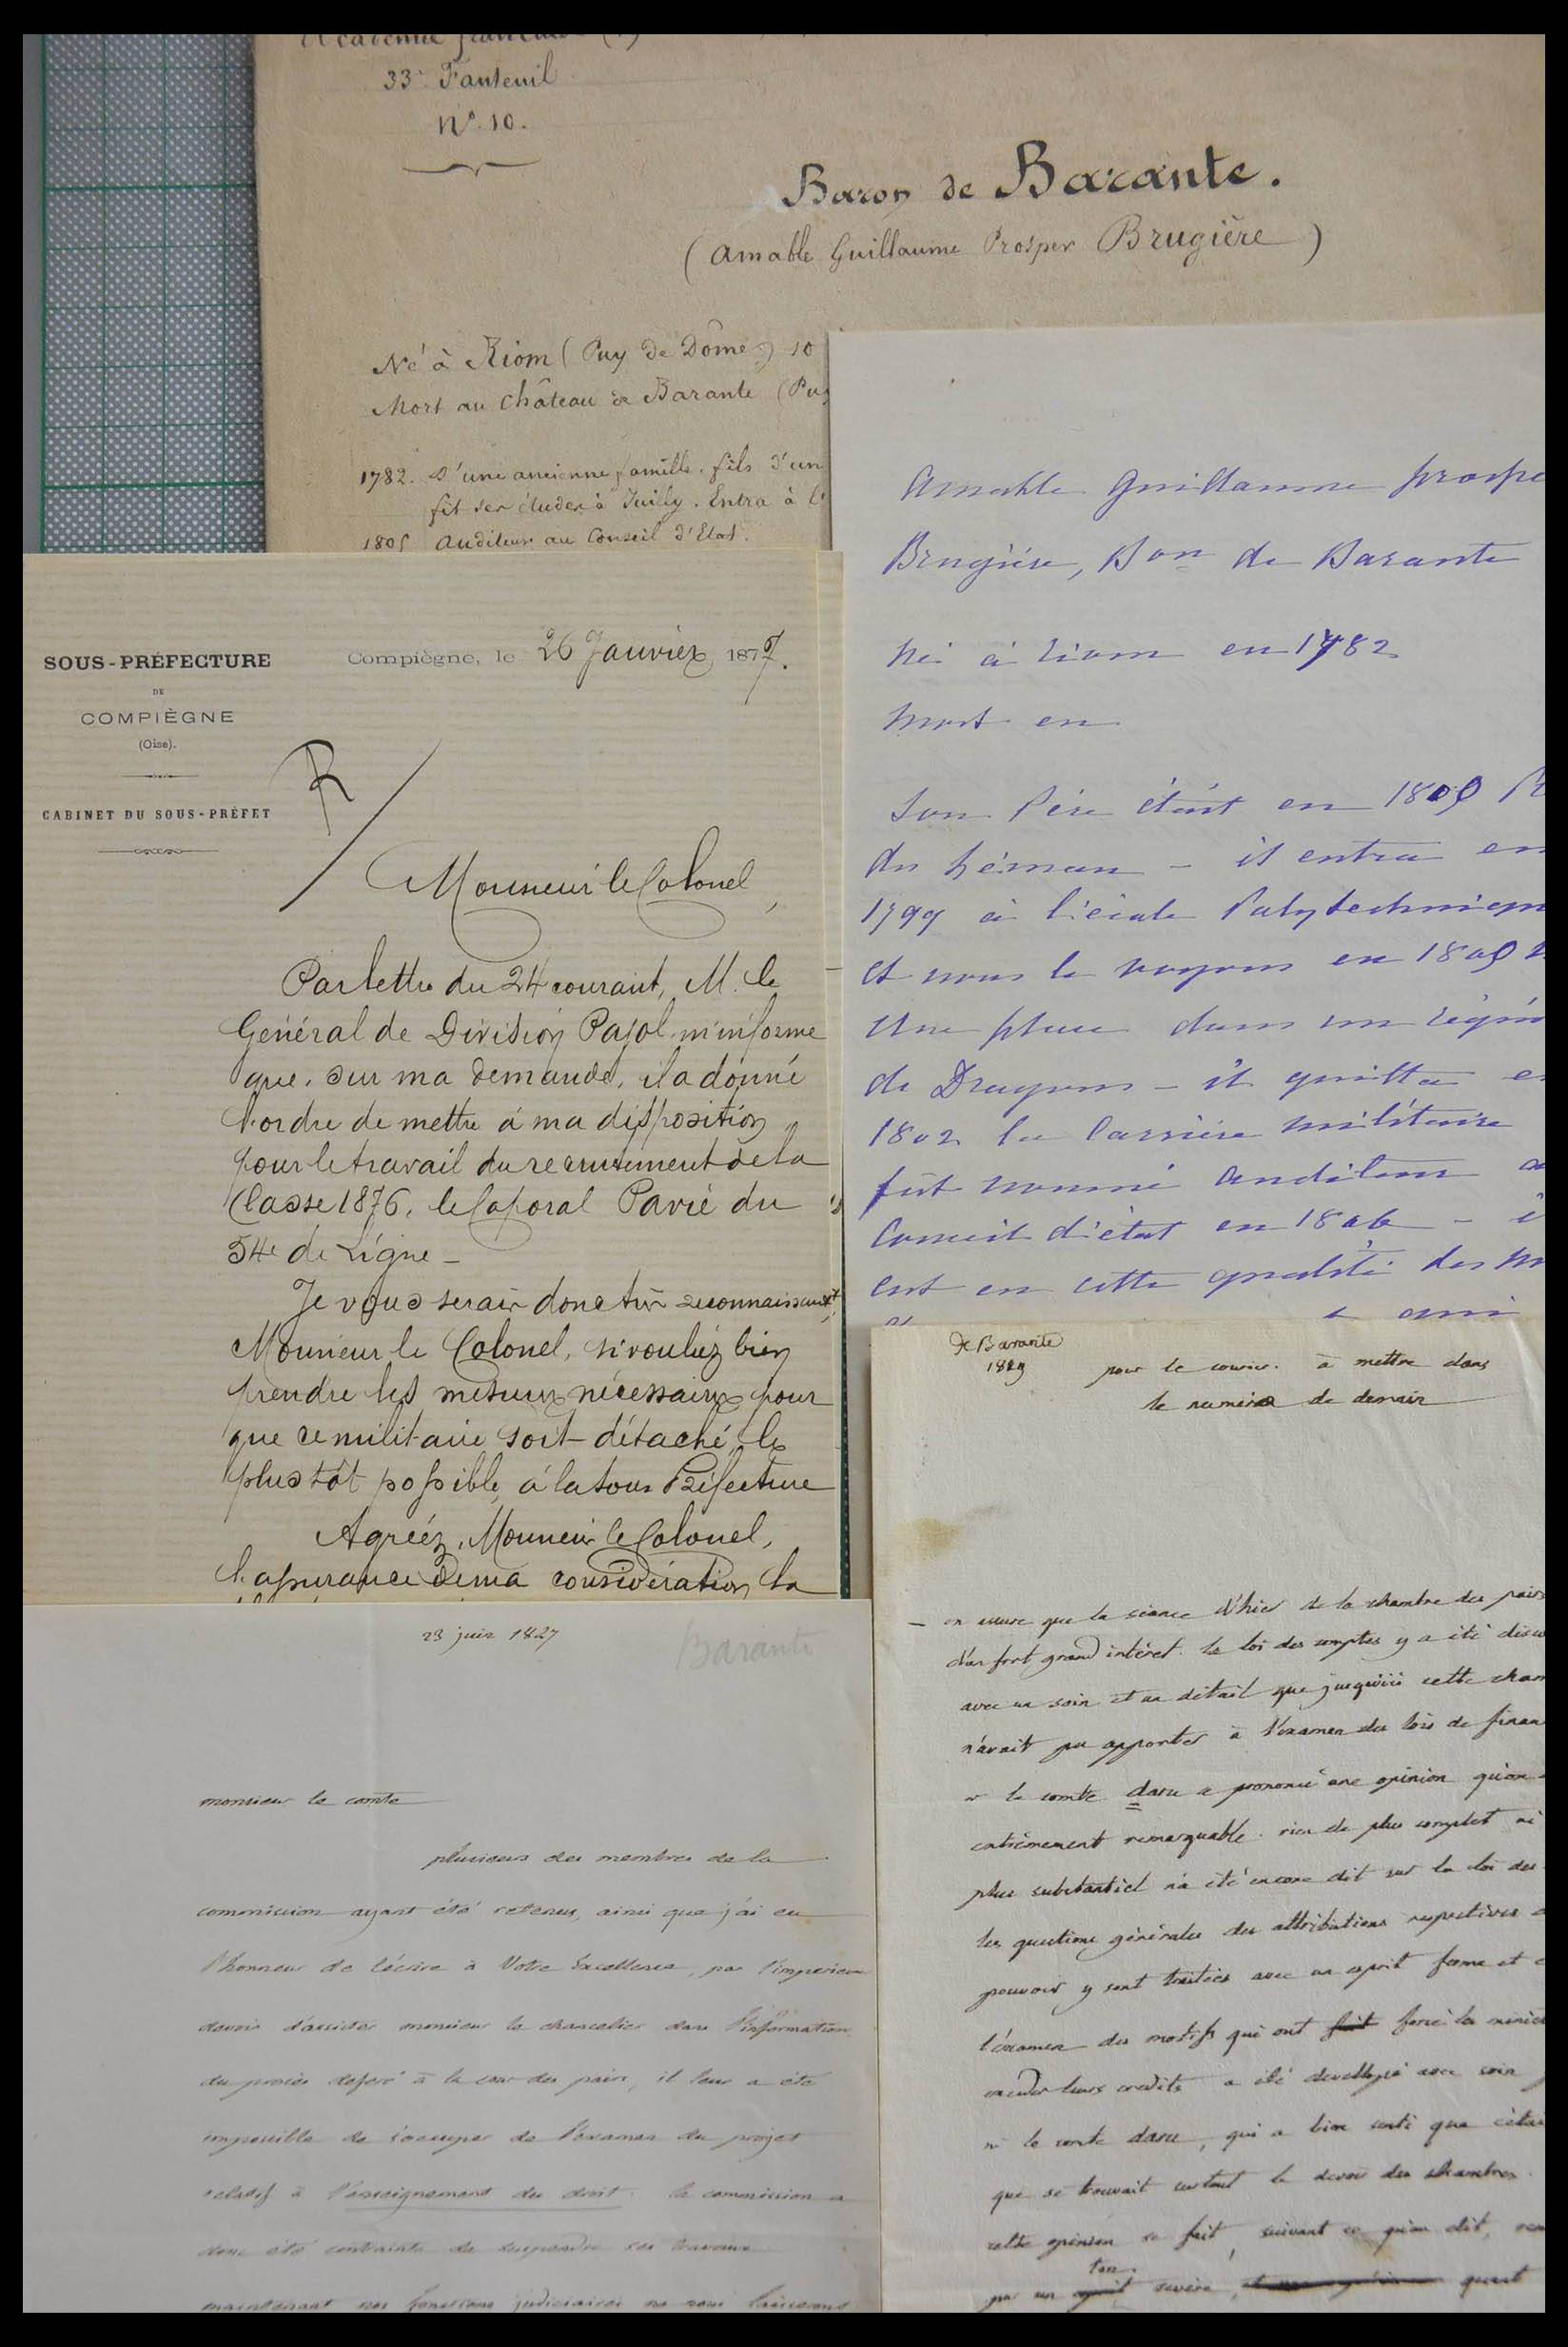 Académie française
33e Fauteuil
No. 10.
Baron de Barante.
(Amable Guillaume Prosper Brugière)
Né à Riom (Puy de Dôme) 10
Mort au Château de Barante (Puy
1782. D'une ancienne famille. fils d'un
fit ses études à Juilly. Entra à l'
1805 Auditeur au Conseil d'Etat.
Amable Guillaume prospe
Brugière, Bon de Barante
né à riom en 1782
mort en
Son Père était en 1800
du Léman – il entra en
1799 à l'école Polytechnique
et nous le voyons en
une place dans un régim
de Dragons – il quitta e
1802 la Carrière militaire
fut nommé auditeur a
Conseil d'état en 1806 –
est en cette qualité des
SOUS-PRÉFECTURE
DE
COMPIÈGNE
(Oise).
CABINET DU SOUS-PRÉFET
Compiègne, le 26 Janvier 1877.
R
Monsieur le Colonel,
Par lettre du 24 courant, M. le
Général de Division Pajol, m'informe
que, sur ma demande, il a donné
l'ordre de mettre à ma disposition
pour le travail du recrutement de la
Classe 1876, le Caporal Parié du
54e de Ligne –
Je vous serais donc très reconnaissant,
Monsieur le Colonel, si vouliez bien
prendre les mesures nécessaires pour
que ce militaire soit détaché le
plus tôt possible, à la sous Préfecture
Agréez, Monsieur le Colonel,
l'assurance de ma considération la
De Barante
1829
pour le courrier. à mettre dans
le numéro de demain
– on assure que la séance d'hier de la chambre des pairs
d'un fort grand intérêt. la loi des comptes y a été discu
avec un soin et un détail que jusqu'ici cette cham
n'avait pu apporter à l'examen des lois de finan
mr le comte daru a prononcé une opinion qu'on
extrêmement remarquable. rien de plus complet ni
plus substantiel n'a été encore dit sur la loi des
les questions générales des attributions respectives
pouvoir y sont traitées avec un esprit ferme et
l'examen des motifs qui ont fait forcé les minist
excéder leurs credits a été developpé avec soin
mr le comte daru, qui a bien senti que c'étai
que se trouvait surtout le devoir des chambres.
cette opinion se fait, suivant ce qu'on dit,
ton
par un esprit sévère,
23 juin 1827
Barante
monsieur le comte
plusieurs des membres de la
commission ayant été retenus, ainsi que j'ai eu
l'honneur de l'écrire à Votre Excellence, par l'impérieux
devoir d'assister monsieur le chancelier dans l'information
du procès deferé à la cour des pairs, il leur a été
impossible de s'occuper de l'examen du projet
relatif à l'enseignement du droit. la commission a
donc été contrainte de suspendre ses travaux
maintenant nos fonctions judiciaires ne nous laisseront